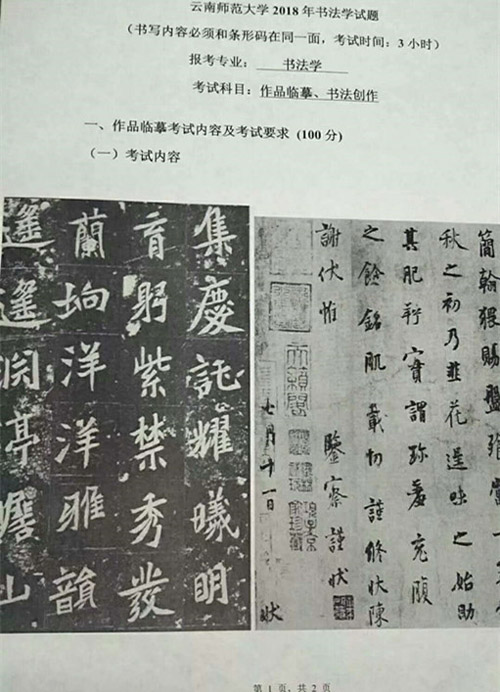 云南师范大学 2018 年书法学试题
(书写内容必须和条形码在同一面，考试时间：3 小时)
报考专业：书法学
考试科目：作品临摹、书法创作
一、作品临摹考试内容及考试要求 (100 分)
(一) 考试内容
集慶託耀曦明
育躬紫禁秀發
蘭坰洋洋雅韻
遙遙淵亭山
簡翰猥賜盤飧當
秋之初乃韭花逞味之始助
其肥羜實謂珍羞充腹
之餘銘肌載切謹修狀陳
謝伏惟
鑒察謹狀
七月十一日
狀
第 1 页，共 2 页